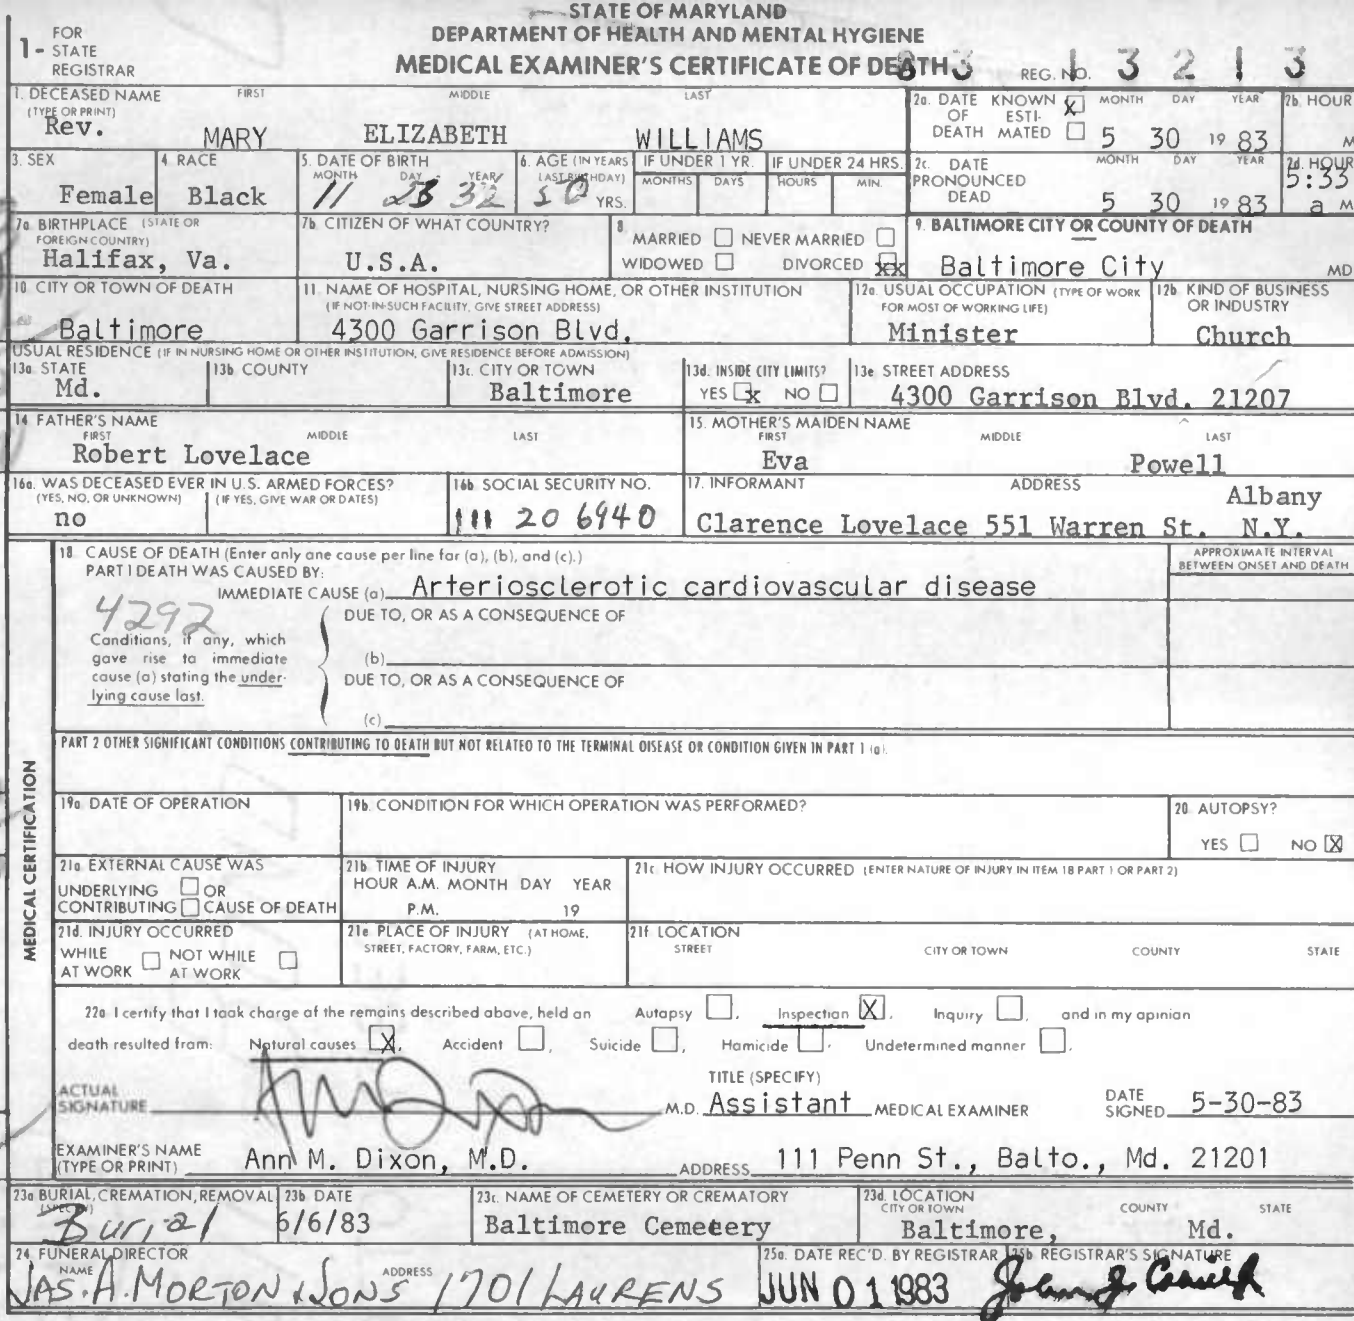 STATE OF MARYLAND
DEPARTMENT OF HEALTH AND MENTAL HYGIENE
MEDICAL EXAMINER'S CERTIFICATE OF DEATH
1- FOR STATE REGISTRAR
83 REG. NO. 1 3 2 1 3
1. DECEASED NAME (TYPE OR PRINT) FIRST MIDDLE LAST
Rev. MARY ELIZABETH WILLIAMS
2a. DATE OF DEATH KNOWN X ESTIMATED MONTH DAY YEAR
5 30 19 83
2b. HOUR M
3. SEX
Female
4. RACE
Black
5. DATE OF BIRTH MONTH DAY YEAR
11 23 32
6. AGE (IN YEARS LAST BIRTHDAY)
50 YRS.
IF UNDER 1 YR. MONTHS DAYS
IF UNDER 24 HRS. HOURS MIN.
2c. DATE PRONOUNCED DEAD MONTH DAY YEAR
5 30 19 83
2d. HOUR
5:33 a M
7a. BIRTHPLACE (STATE OR FOREIGN COUNTRY)
Halifax, Va.
7b. CITIZEN OF WHAT COUNTRY?
U.S.A.
8. MARRIED NEVER MARRIED
WIDOWED DIVORCED xx
9. BALTIMORE CITY OR COUNTY OF DEATH
Baltimore City MD
10. CITY OR TOWN OF DEATH
Baltimore
11. NAME OF HOSPITAL, NURSING HOME, OR OTHER INSTITUTION
(IF NOT IN SUCH FACILITY, GIVE STREET ADDRESS)
4300 Garrison Blvd.
12a. USUAL OCCUPATION (TYPE OF WORK FOR MOST OF WORKING LIFE)
Minister
12b. KIND OF BUSINESS OR INDUSTRY
Church
USUAL RESIDENCE (IF IN NURSING HOME OR OTHER INSTITUTION, GIVE RESIDENCE BEFORE ADMISSION)
13a. STATE
Md.
13b. COUNTY
13c. CITY OR TOWN
Baltimore
13d. INSIDE CITY LIMITS?
YES x NO
13e. STREET ADDRESS
4300 Garrison Blvd. 21207
14. FATHER'S NAME
FIRST MIDDLE LAST
Robert Lovelace
15. MOTHER'S MAIDEN NAME
FIRST MIDDLE LAST
Eva Powell
16a. WAS DECEASED EVER IN U.S. ARMED FORCES?
(YES, NO, OR UNKNOWN) (IF YES, GIVE WAR OR DATES)
no
16b. SOCIAL SECURITY NO.
111 20 6940
17. INFORMANT ADDRESS
Clarence Lovelace 551 Warren St. Albany N.Y.
MEDICAL CERTIFICATION
18. CAUSE OF DEATH (Enter only one cause per line for (a), (b), and (c).)
APPROXIMATE INTERVAL BETWEEN ONSET AND DEATH
PART I DEATH WAS CAUSED BY:
IMMEDIATE CAUSE (a) Arteriosclerotic cardiovascular disease
4292
DUE TO, OR AS A CONSEQUENCE OF
Conditions, if any, which gave rise to immediate cause (a) stating the underlying cause last.
(b)
DUE TO, OR AS A CONSEQUENCE OF
(c)
PART 2 OTHER SIGNIFICANT CONDITIONS CONTRIBUTING TO DEATH BUT NOT RELATED TO THE TERMINAL DISEASE OR CONDITION GIVEN IN PART 1 (a).
19a. DATE OF OPERATION
19b. CONDITION FOR WHICH OPERATION WAS PERFORMED?
20. AUTOPSY?
YES NO X
21a. EXTERNAL CAUSE WAS
UNDERLYING OR
CONTRIBUTING CAUSE OF DEATH
21b. TIME OF INJURY
HOUR A.M. MONTH DAY YEAR
P.M. 19
21c. HOW INJURY OCCURRED (ENTER NATURE OF INJURY IN ITEM 18 PART 1 OR PART 2)
21d. INJURY OCCURRED
WHILE AT WORK NOT WHILE AT WORK
21e. PLACE OF INJURY (AT HOME, STREET, FACTORY, FARM, ETC.)
21f. LOCATION
STREET CITY OR TOWN COUNTY STATE
22a. I certify that I took charge of the remains described above, held an Autopsy, Inspection X, Inquiry, and in my opinion
death resulted from: Natural causes X, Accident, Suicide, Homicide, Undetermined manner.
ACTUAL SIGNATURE M.D.
TITLE (SPECIFY)
Assistant MEDICAL EXAMINER
DATE SIGNED 5-30-83
EXAMINER'S NAME (TYPE OR PRINT) Ann M. Dixon, M.D.
ADDRESS 111 Penn St., Balto., Md. 21201
23a. BURIAL, CREMATION, REMOVAL (SPECIFY)
Burial
23b. DATE
6/6/83
23c. NAME OF CEMETERY OR CREMATORY
Baltimore Cemetery
23d. LOCATION
CITY OR TOWN COUNTY STATE
Baltimore, Md.
24. FUNERAL DIRECTOR
NAME ADDRESS
JAS. A. MORTON & SONS 1701 LAURENS
25a. DATE REC'D. BY REGISTRAR
JUN 01 1983
25b. REGISTRAR'S SIGNATURE